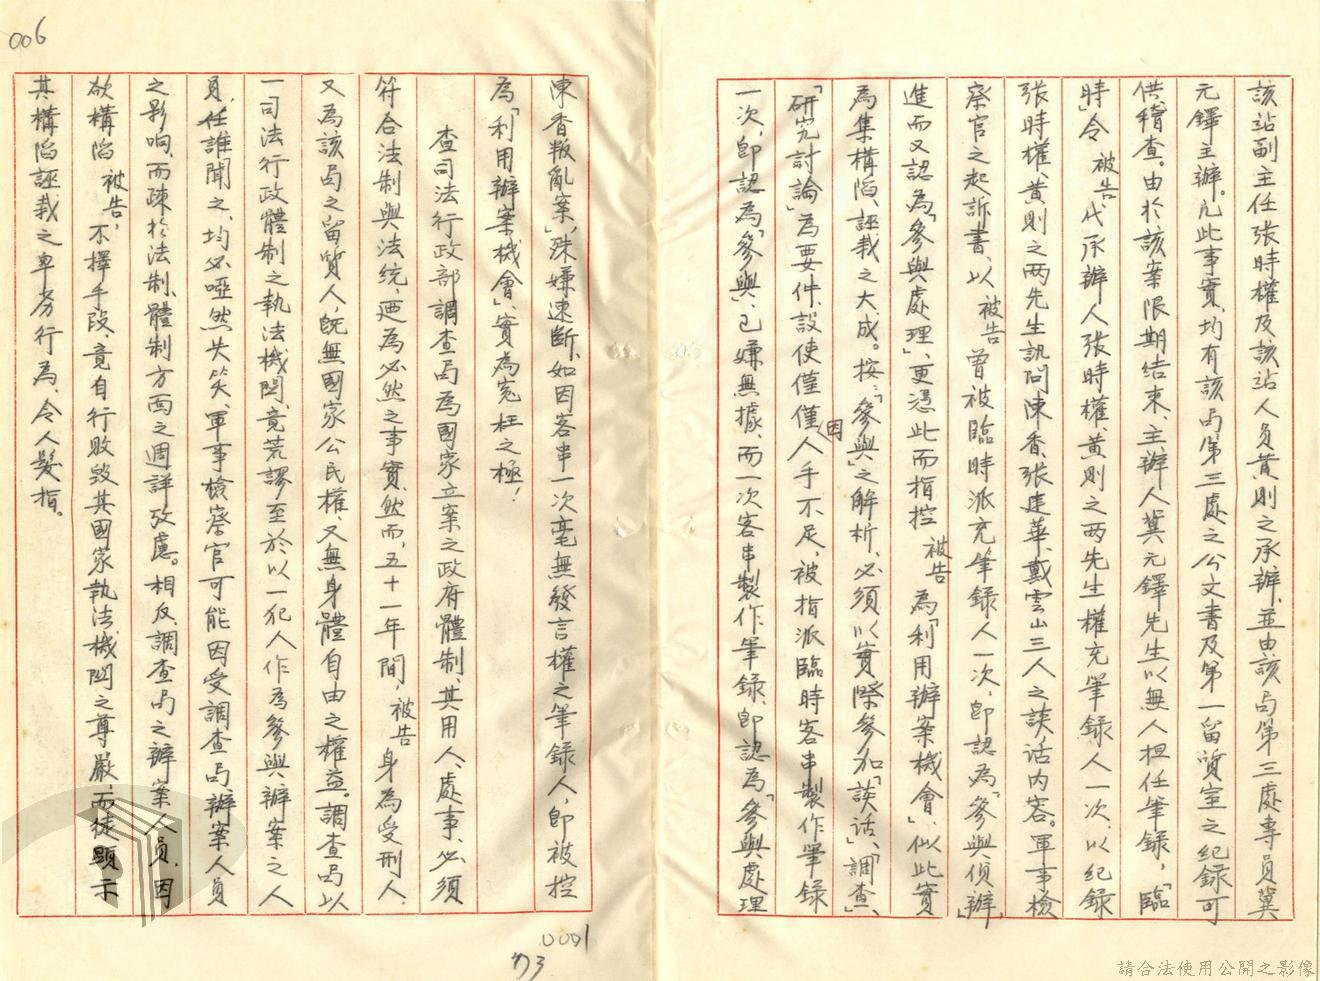 該站副主任張時權及該站人員黄則之承辦、並由該局第三處專員冀
元鐸主辦。凢此事實、均有該局第三處之公文書及第一留質室之紀録可
供稽查。由於該案限期結束、主辦人冀元鐸先生以無人担任筆録、「臨
時」令被告代承辦人張時權、黄則之两先生權充筆録人一次、以紀録
張時權、黄則之两先生訊問陳香、張建華、戴雲山三人之談话内容。軍事檢
察官之起訴書、以被告曾被臨時派充筆録人一次、即認為「參與偵辦」、
進而又認為「參與處理」、更憑此而指控被告為「利用辦案機會」、似此實
為集構陷、誣栽之大成。按：「參與」之解析、必須以實際參加「談话」、「調查」、
「研究討論」為要件、設使僅僅因人手不足、被指派臨時客串製作筆録
一次、即認為「參與」、已嫌無據、而一次客串製作筆録、即認為「參與處理
陳香叛亂案」、殊嫌速斷、如因客串一次毫無發言權之筆録人、即被控
為「利用辦案機會」、實為寃枉之極！
查司法行政部調查局為國家立案之政府體制、其用人、處事、必須
符合法制與法統、迺為必然之事實、然而、五十一年間、被告身為受刑人、
又為該局之留質人、旣無國家公民權、又無身體自由之權益。調查局以
一司法行政體制之執法機関、竟荒謬至於以一犯人作為參與辦案之人
員、任誰聞之、均必啞然失笑、軍事檢察官可能因受調查局辦案人員
之影响、而疎於法制、體制方面之週詳攷慮。相反、調查局之辦案人員、因
欲構陷被告、不擇手段、竟自行敗毀其國家執法機関之尊嚴、而徒顯示
其構陷誣栽之卑劣行為、令人髮指。
006
0001
73
請合法使用公開之影像